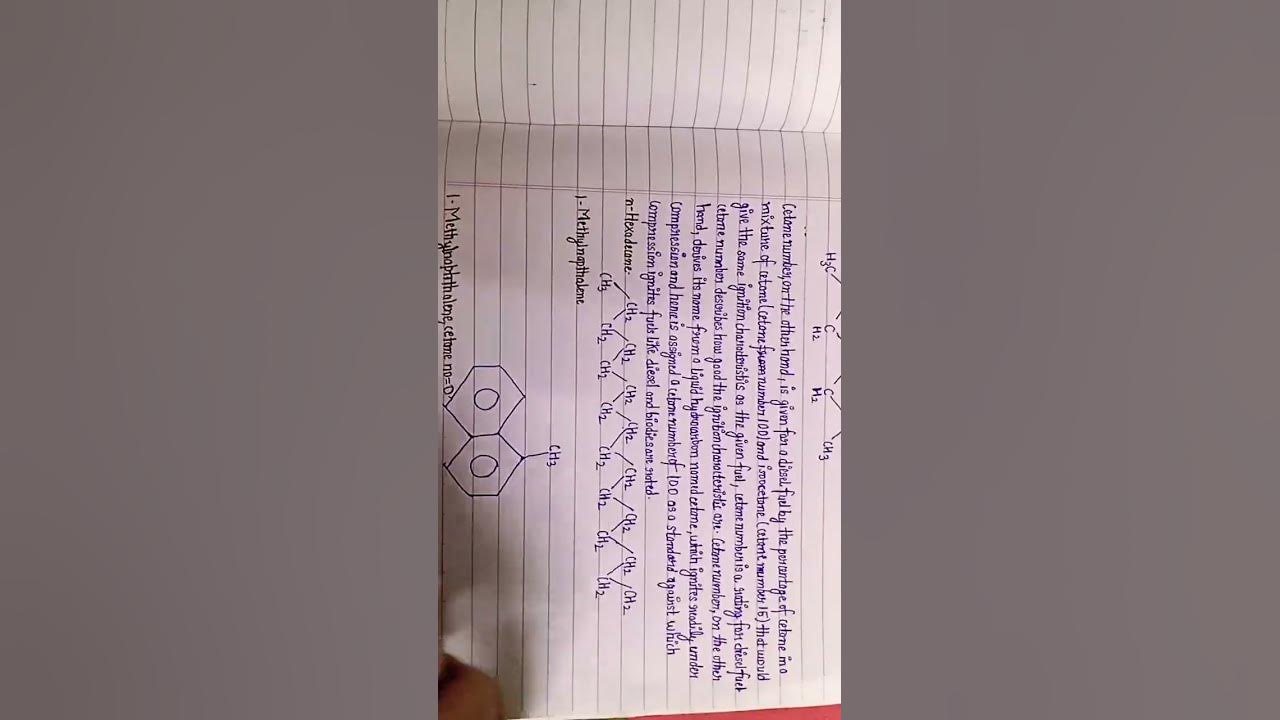 H3C C C CH3
H2 H2
Cetane number, on the other hand, is given for a diesel fuel by the percentage of cetane in a
mixture of cetane (cetane number 100) and isocetane (cetane number 15) that would
give the same ignition characteristics as the given fuel, cetane number is a rating for diesel fuel
cetane number describes how good the ignition characteristic are. Cetane number, on the other
hand, derives its name from a liquid hydrocarbon named cetane, which ignites readily under
compression and hence is assigned a cetane number of 100 as a standard against which
compression ignites fuels like diesel and biodies are rated.
n-Hexadecane. CH2 CH2 CH2 CH2 CH2 CH2 CH2 CH2
CH3 CH2 CH2 CH2 CH2 CH2 CH2 CH2
1- Methylnapthalene
CH3
1- Methylnaphthalene, cetane no=0